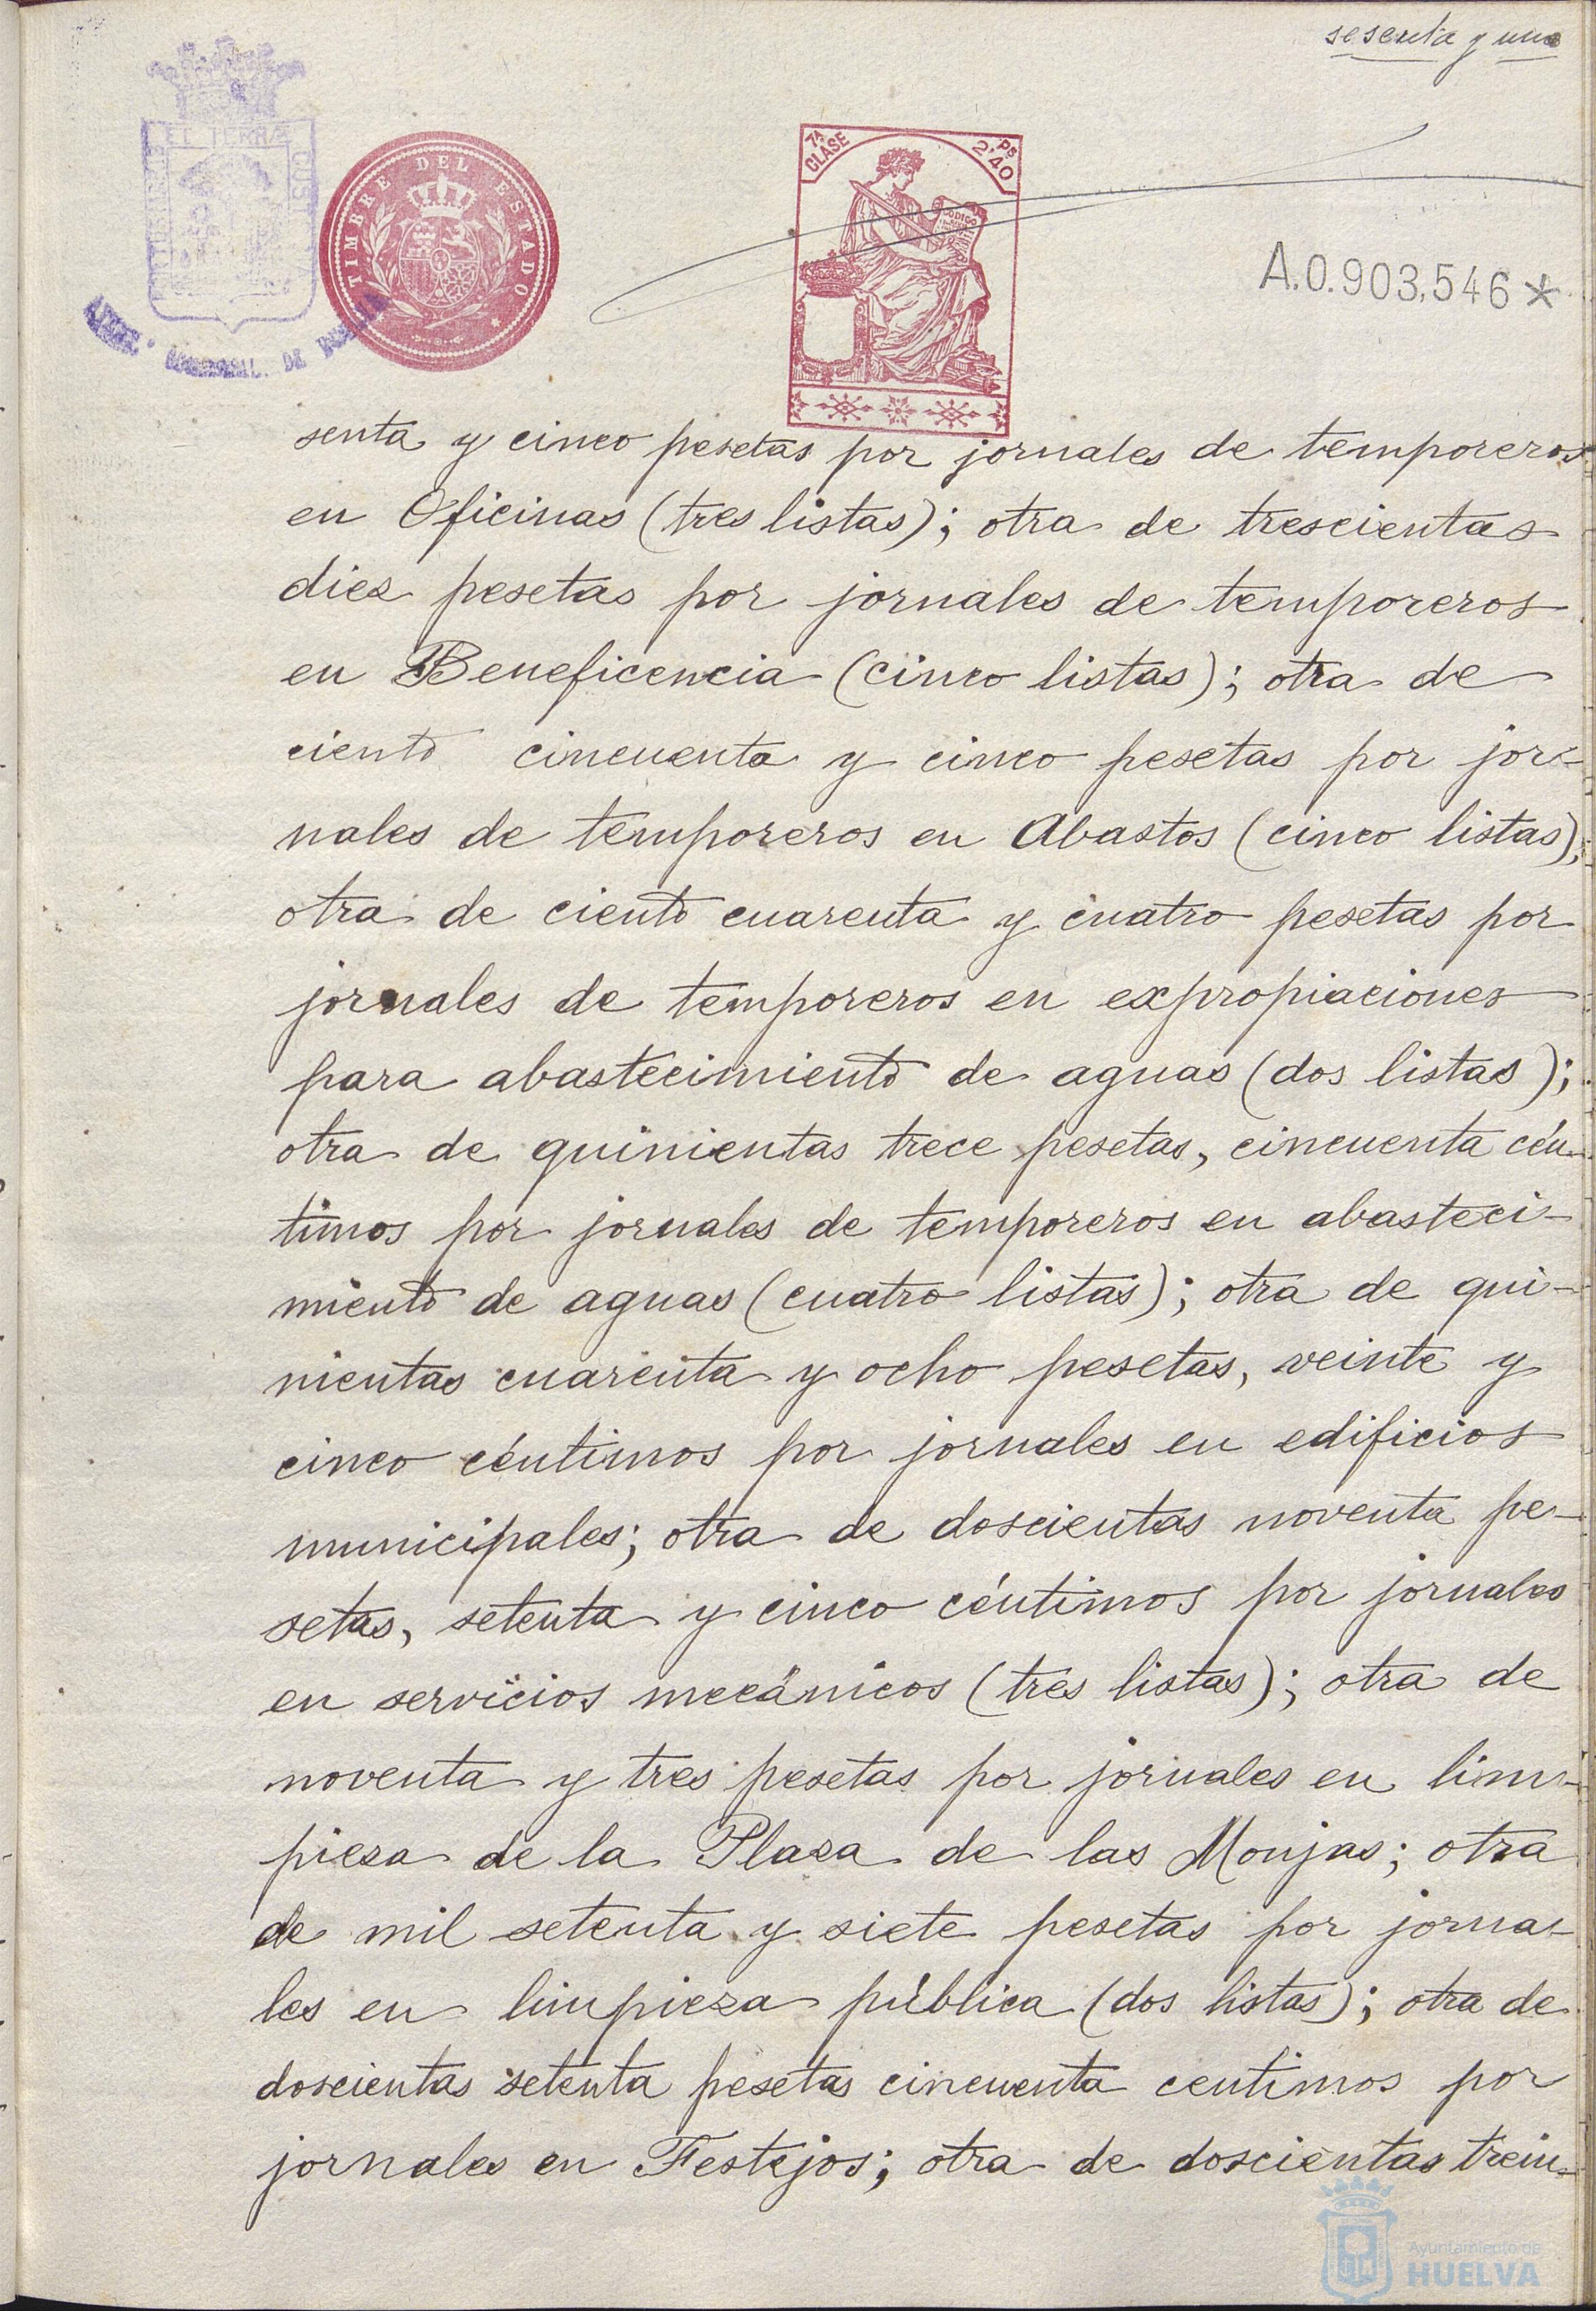 sesenta y uno
EL TERRÆ CUST
TIMBRE DEL ESTADO
7ª CLASE
Ps 2'40
CODIGO
A.0.903,546*
MUNICIPAL. DE
senta y cinco pesetas por jornales de temporeros
en Oficinas (tres listas); otra de trescientas
diez pesetas por jornales de temporeros
en Beneficencia (cinco listas); otra de
ciento cincuenta y cinco pesetas por jor-
nales de temporeros en Abastos (cinco listas);
otra de ciento cuarenta y cuatro pesetas por
jornales de temporeros en expropiaciones
para abastecimiento de aguas (dos listas);
otra de quinientas trece pesetas, cincuenta cén-
timos por jornales de temporeros en abasteci-
miento de aguas (cuatro listas); otra de qui-
nientas cuarenta y ocho pesetas, veinte y
cinco céntimos por jornales en edificios
municipales; otra de doscientas noventa pe-
setas, setenta y cinco céntimos por jornales
en servicios mecánicos (tres listas); otra de
noventa y tres pesetas por jornales en lim-
pieza de la Plaza de las Monjas; otra
de mil setenta y siete pesetas por jorna-
les en limpieza pública (dos listas); otra de
doscientas setenta pesetas cincuenta centimos por
jornales en Festejos; otra de doscientas trein-
Ayuntamiento de
HUELVA